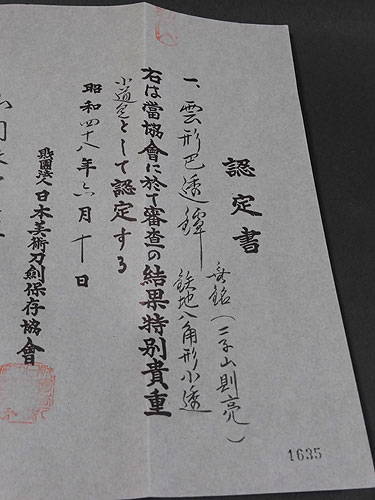 認定書
一、雲形巴透鐔
無銘(二子山則亮)
鉄地八角形小透
右は當協會に於て審査の結果特別貴重
小道具として認定する
昭和四十八年六月十日
財團法人日本美術刀劍保存協會
1635